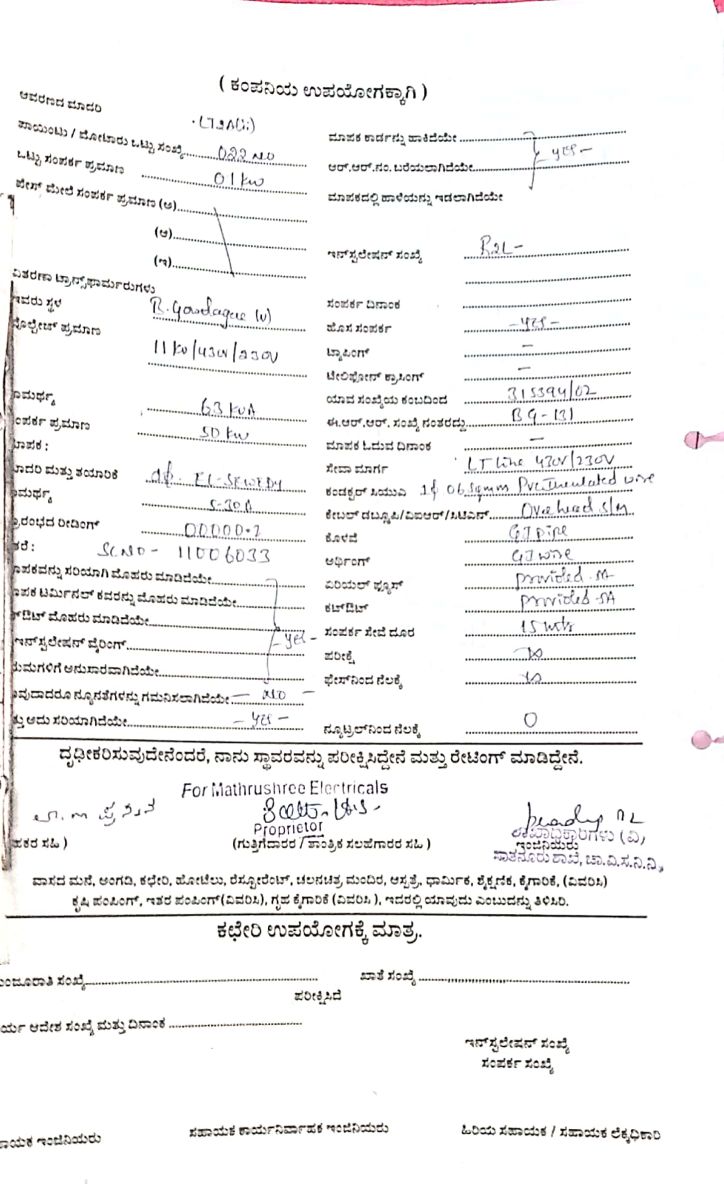 ( ಕಂಪನಿಯ ಉಪಯೋಗಕ್ಕಾಗಿ )
ಆವರಣದ ಮಾದರಿ
ಪಾಯಿಂಟು / ಮೋಟಾರು ಒಟ್ಟು ಸಂಖ್ಯೆ 022 NO
ಒಟ್ಟು ಸಂಪರ್ಕ ಪ್ರಮಾಣ 01 KW
ಫೇಸ್ ಮೇಲೆ ಸಂಪರ್ಕ ಪ್ರಮಾಣ (ಅ)
(ಆ)
(ಇ)
ವಿತರಣಾ ಟ್ರಾನ್ಸ್‌ಫಾರ್ಮರುಗಳು
ಇವರು ಸ್ಥಳ
ವೋಲ್ಟೇಜ್ ಪ್ರಮಾಣ
11 KV/430V/230V
ಾಮರ್ಥ್ಯ 63 KVA
ಂಪರ್ಕ ಪ್ರಮಾಣ 50 KW
ಾಪಕ :
ಾದರಿ ಮತ್ತು ತಯಾರಿಕೆ
ಾಮರ್ಥ್ಯ 5-30A
್ರಾರಂಭದ ರೀಡಿಂಗ್ 00000.2
ತರೆ : SL NO - 11006033
ಾಪಕವನ್ನು ಸರಿಯಾಗಿ ಮೊಹರು ಮಾಡಿದೆಯೇ
ಾಪಕ ಟರ್ಮಿನಲ್ ಕವರನ್ನು ಮೊಹರು ಮಾಡಿದೆಯೇ
ಔಟ್ ಮೊಹರು ಮಾಡಿದೆಯೇ
ಇನ್‌ಸ್ಟಲೇಷನ್ ವೈರಿಂಗ್ - yes -
ಯಮಗಳಿಗೆ ಅನುಸಾರವಾಗಿದೆಯೇ
ವುದಾದರೂ ನ್ಯೂನತೆಗಳನ್ನು ಗಮನಿಸಲಾಗಿದೆಯೇ - NO -
ತು ಅದು ಸರಿಯಾಗಿದೆಯೇ - yes -
ಮಾಪಕ ಕಾರ್ಡನ್ನು ಹಾಕಿದೆಯೇ
ಆರ್.ಆರ್.ನಂ. ಬರೆಯಲಾಗಿದೆಯೇ - yes -
ಮಾಪಕದಲ್ಲಿ ಹಾಳೆಯನ್ನು ಇಡಲಾಗಿದೆಯೇ
ಇನ್‌ಸ್ಟಲೇಷನ್ ಸಂಖ್ಯೆ
ಸಂಪರ್ಕ ದಿನಾಂಕ
ಹೊಸ ಸಂಪರ್ಕ - yes -
ಟ್ಯಾಪಿಂಗ್ -
ಟೇಲಿಫೋನ್ ಕ್ರಾಸಿಂಗ್ -
ಯಾವ ಸಂಖ್ಯೆಯ ಕಂಬದಿಂದ 315394/02
ಈ.ಆರ್.ಆರ್. ಸಂಖ್ಯೆ ನಂತರದ್ದು BG-131
ಮಾಪಕ ಓದುವ ದಿನಾಂಕ -
ಸೇವಾ ಮಾರ್ಗ LT Line 430V/230V
ಕಂಡಕ್ಟರ್ ಸಿಯುಎ 1ф 06 sqmm PVC Insulated wire
ಕೇಬಲ್ ಡಬ್ಲೂಪಿ/ವಿಐಆರ್/ಸಿಟಿಎಸ್ Overhead
ಕೊಳವೆ GI pipe
ಅರ್ಥಿಂಗ್ GI wire
ಏರಿಯಲ್ ಫ್ಯೂಸ್ provided 5A
ಕಟ್‌ಔಟ್ provided 5A
ಸಂಪರ್ಕ ಸೇವೆ ದೂರ 15 mtr
ಪರೀಕ್ಷೆ
ಫೇಸ್‌ನಿಂದ ನೆಲಕ್ಕೆ
ನ್ಯೂಟ್ರಲ್‌ನಿಂದ ನೆಲಕ್ಕೆ 0
ದೃಢೀಕರಿಸುವುದೇನೆಂದರೆ, ನಾನು ಸ್ಥಾವರವನ್ನು ಪರೀಕ್ಷಿಸಿದ್ದೇನೆ ಮತ್ತು ರೇಟಿಂಗ್ ಮಾಡಿದ್ದೇನೆ.
For Mathrushree Electricals
Proprietor
ಹಕರ ಸಹಿ )
(ಗುತ್ತಿಗೆದಾರರ / ತಾಂತ್ರಿಕ ಸಲಹೆಗಾರರ ಸಹಿ )
ಶಾಖಾಧಿಕಾರಿಗಳು (ವಿ)
ಇಂಜಿನಿಯರು
ಸಾತನೂರು ಶಾಖೆ, ಚಾ.ವಿ.ಸ.ನಿ.ನಿ.,
ವಾಸದ ಮನೆ, ಅಂಗಡಿ, ಕಛೇರಿ, ಹೋಟೆಲು, ರೆಸ್ಟೋರೆಂಟ್, ಚಲನಚಿತ್ರ ಮಂದಿರ, ಆಸ್ಪತ್ರೆ, ಧಾರ್ಮಿಕ, ಶೈಕ್ಷಣಿಕ, ಕೈಗಾರಿಕೆ, (ವಿವರಿಸಿ)
ಕೃಷಿ ಪಂಪಿಂಗ್, ಇತರ ಪಂಪಿಂಗ್(ವಿವರಿಸಿ), ಗೃಹ ಕೈಗಾರಿಕೆ (ವಿವರಿಸಿ ), ಇದರಲ್ಲಿ ಯಾವುದು ಎಂಬುದನ್ನು ತಿಳಿಸಿರಿ.
ಕಛೇರಿ ಉಪಯೋಗಕ್ಕೆ ಮಾತ್ರ.
ಂಜೂರಾತಿ ಸಂಖ್ಯೆ ಖಾತೆ ಸಂಖ್ಯೆ
ಪರೀಕ್ಷಿಸಿದೆ
ರ್ಯ ಆದೇಶ ಸಂಖ್ಯೆ ಮತ್ತು ದಿನಾಂಕ
ಇನ್‌ಸ್ಟಲೇಷನ್ ಸಂಖ್ಯೆ
ಸಂಪರ್ಕ ಸಂಖ್ಯೆ
ಾಯಕ ಇಂಜಿನಿಯರು ಸಹಾಯಕ ಕಾರ್ಯನಿರ್ವಾಹಕ ಇಂಜಿನಿಯರು ಹಿರಿಯ ಸಹಾಯಕ / ಸಹಾಯಕ ಲೆಕ್ಕಧಿಕಾರಿ